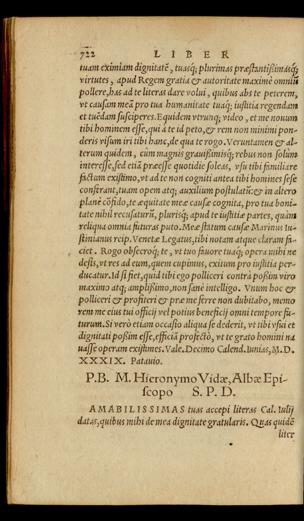 722 LIBER
tuam eximiam dignitatẽ, tuasq́; plurimas præstantißimasq́;
virtutes, apud Regem gratia & autoritate maximè omniũ
pollere, has ad te literas dare volui, quibus abs te peterem,
vt causam meã pro tua humanitate tuaq́; iustitia regendam
et tuẽdam susciperes. Equidem vtrunq; video, et me nouum
tibi hominem esse, qui à te id peto, & rem non minimi pon-
deris visum iri tibi hanc, de qua te rogo. Veruntamen & al-
terum quidem, cùm magnis grauißimisq́; rebus non solùm
interesse, sed etiã præesse quotidie soleas, vsu tibi familiare
factum existimo, vt ad te non cogniti antea tibi homines sese
conferant, tuam opem atq; auxilium postulatũ: & in altero
planè cõfido, te æquitate meæ causæ cognita, pro tua boni-
tate nihil recusaturũ, plurisq́; apud te iustitiæ partes, quàm
reliqua omnia futuras puto. Meæ statum causæ Marinus Iu-
stinianus reip. Venetæ Legatus, tibi notam atque claram fa-
ciet. Rogo obsecroq́; te, vt tuo fauore tuaq́; opera mihi ne
desis, vt res ad eum, quem cupimus, exitum pro iustitia per-
ducatur. Id si fiet, quid tibi ego polliceri contrà poßim viro
maximo atq; amplißimo, non sanè intelligo. Vnum hoc &
polliceri & profiteri & præ me ferre non dubitabo, memo
rem me eius tui officij vel potius beneficij omni tempore fu-
turum. Si verò etiam occasio aliqua se dederit, vt tibi vsui et
dignitati poßim esse, efficiã profectò, vt te grato homini na
uasse operam existimes. Vale. Decimo Calend. Iunias, M. D.
XXXIX. Patauio.
P.B. M. Hieronymo Vidæ, Albæ Epi-
scopo S. P. D.
AMABILISSIMAS tuas accepi literas Cal. Iulij
datas, quibus mihi de mea dignitate gratularis. Quas quidẽ
liter